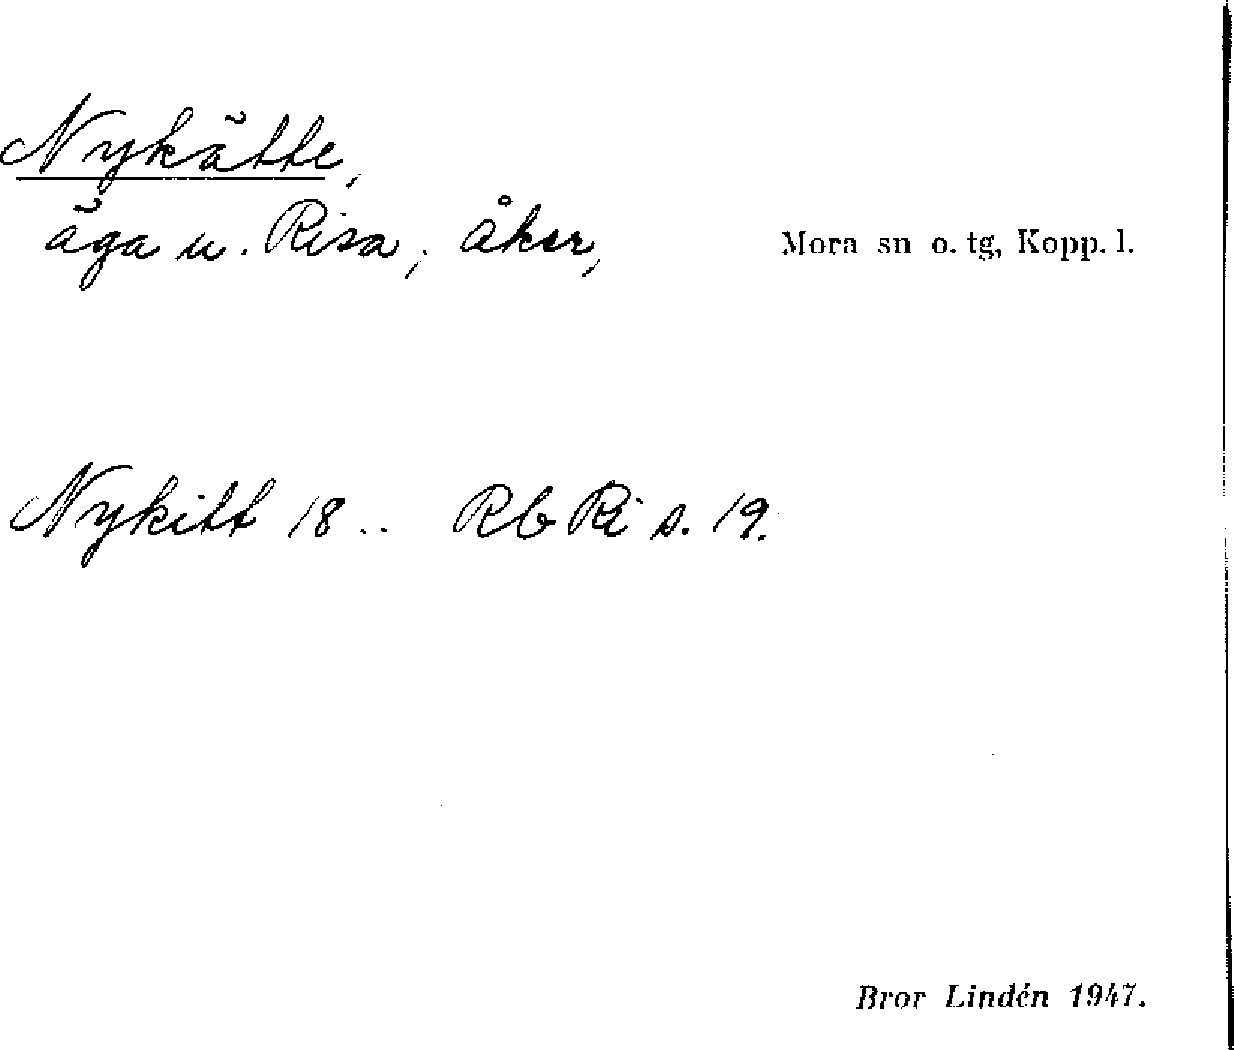 Nykätte,
äga u. Risa; åker,
Mora sn o. tg, Kopp. l.
Nykitt 18.. Rb Ri s. 19.
Bror Lindén 1947.